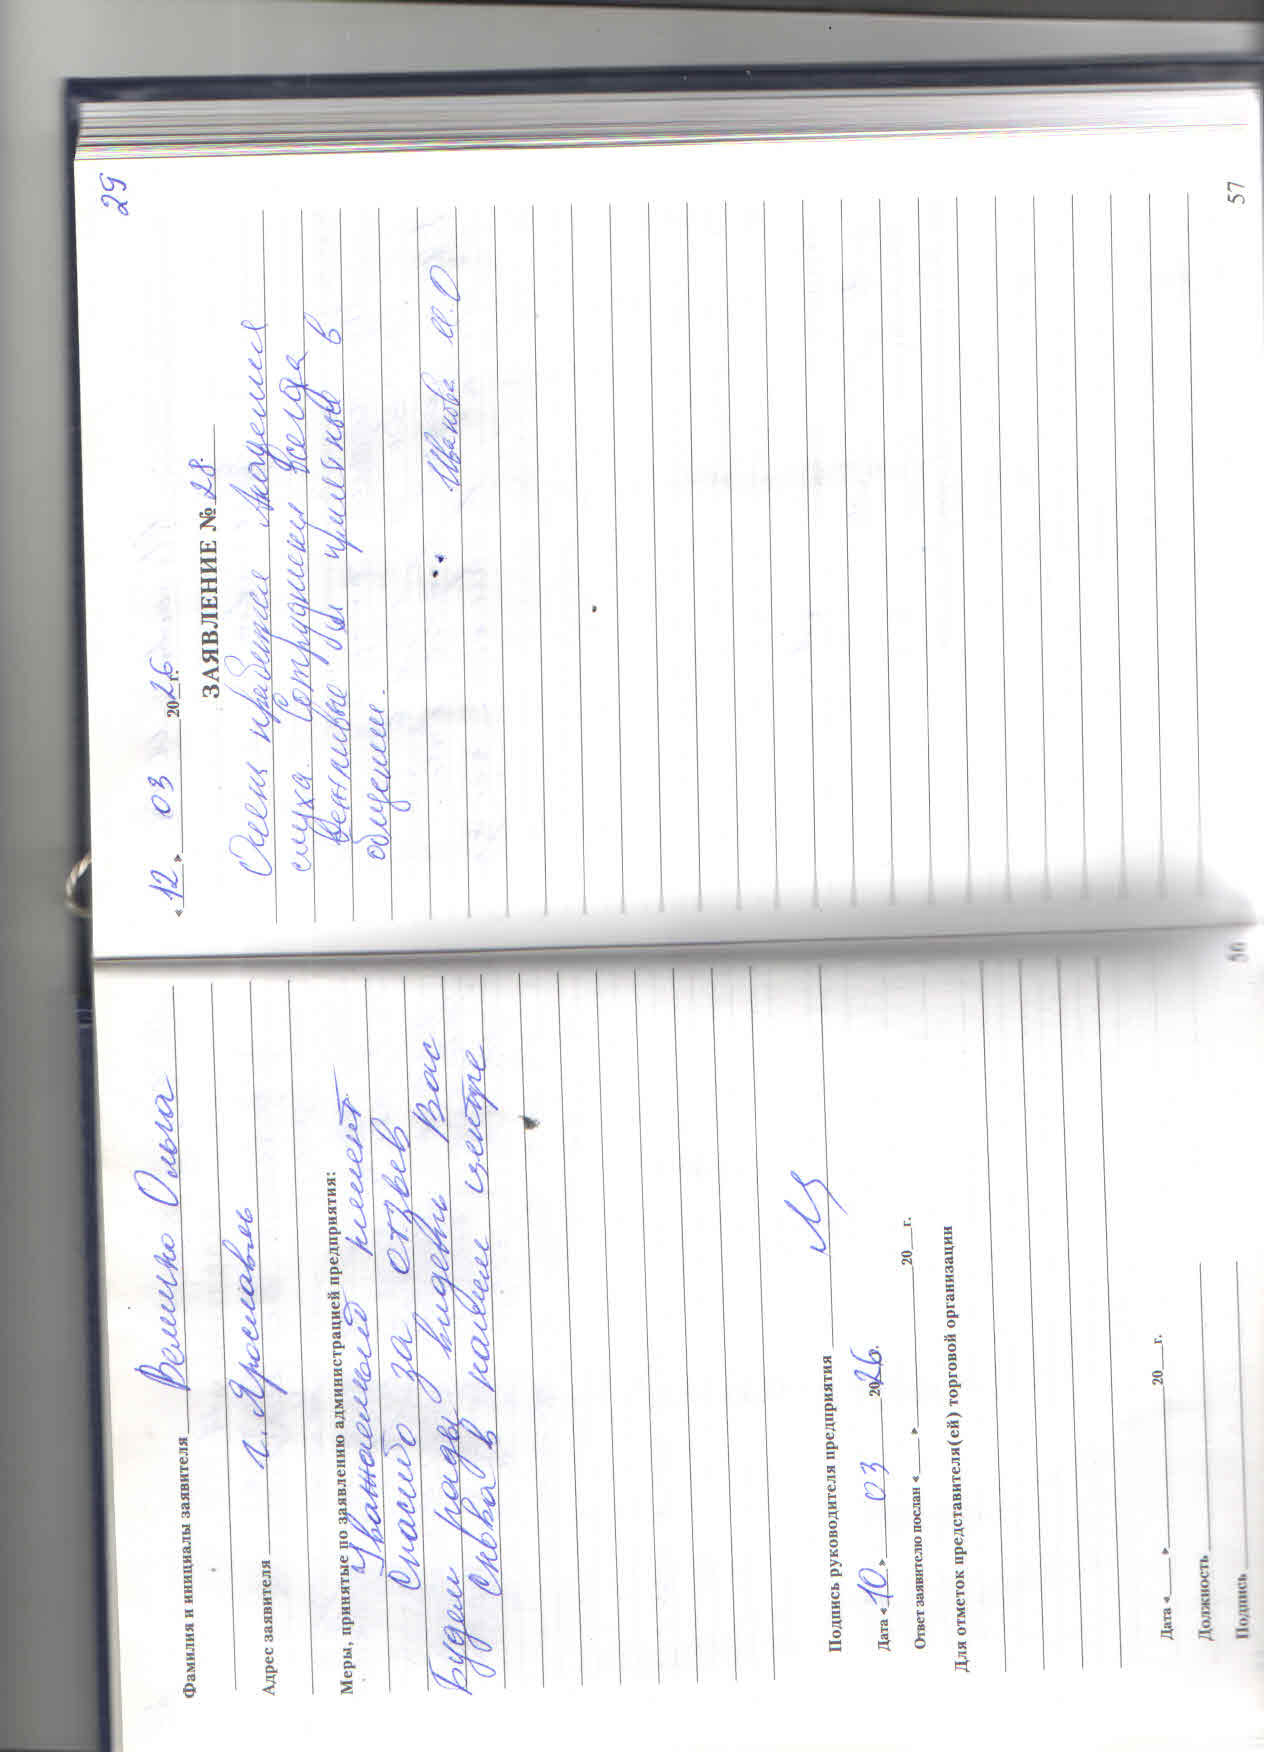 Фамилия и инициалы заявителя Величко Ольга
Адрес заявителя г. Ярославль
Меры, принятые по заявлению администрацией предприятия:
Уважаемый клиент
Спасибо за отзыв
Будем рады видеть Вас
снова в нашем центре
Подпись руководителя предприятия
Дата «10» 03 2026г.
Ответ заявителю послан «___» 20__г.
Для отметок представителя(ей) торговой организации
Дата «___» 20__г.
Должность
Подпись
56
29
«12» 03 2026г.
ЗАЯВЛЕНИЕ № 28.
Очень нравится Академия
слуха. Сотрудники всегда
вежливые и приятный в
общении.
Иванова И.О
57